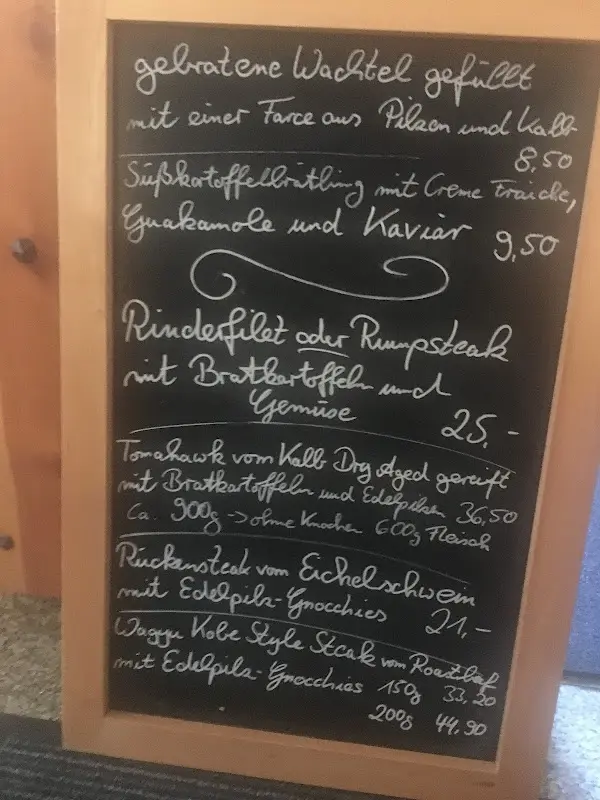 gebratene Wachtel gefüllt
mit einer Farce aus Pilzen und Kalb
8,50
Süßkartoffelbrätling mit Creme Fraiche,
Guakamole und Kaviar 9,50
Rinderfilet oder Rumpsteak
mit Bratkartoffeln und
Gemüse 25,-
Tomahawk vom Kalb Dry Aged gereift
mit Bratkartoffeln und Edelpilzen 36,50
Ca. 900g -> ohne Knochen 600g Fleisch
Rückensteak vom Eichelschwein
mit Edelpilz-Gnocchies 21,-
Wagyu Kobe Style Steak vom Roastbeef
mit Edelpilz-Gnocchies 150g 33,20
200g 44,90